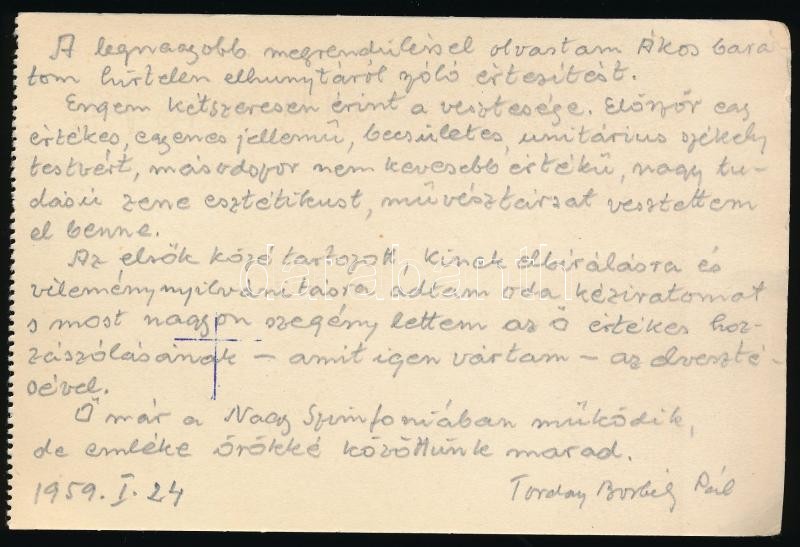 A legnagyobb megrendüléssel olvastam Ákos bará
tom hirtelen elhunytáról szóló értesítést.
Engem kétszeresen érint a vesztesége. Először egy
értékes, egyenes jellemű, becsületes, unitárius székely
testvért, másodszor nem kevesebb értékű, nagy tu-
dású zene esztétikust, művésztársat vesztettem
el benne.
Az elsők közé tartozott, kinek elbirálásra és
véleménynyilvánitásra adtam oda kéziratomat
s most nagyon szegény lettem az Ő értékes hoz-
zászólásának – amit igen vártam – az elveszté-
sével.
Ő már a Nagy Szimfoniában működik,
de emléke örökké közöttünk marad.
1959. I. 24
Torday Borbély Pál
darabanth